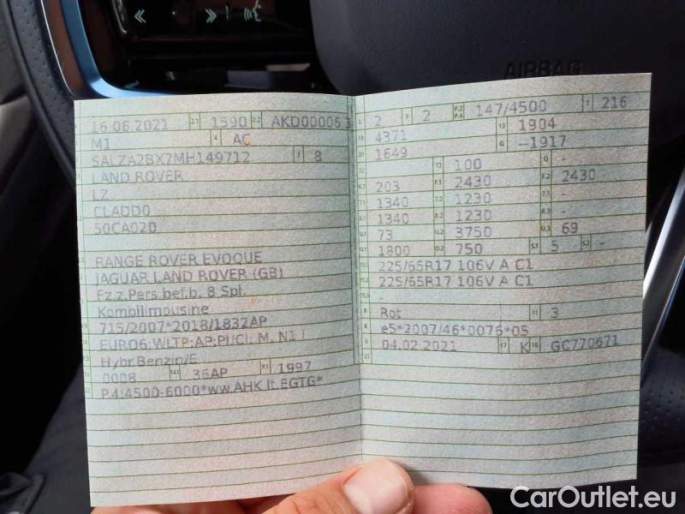 AIRBAG
16.06.2021 1590 AKD00005
M1 AC
SALZA2BX7MH149712 8
LAND ROVER
LZ
CLADD0
50CA02D
RANGE ROVER EVOQUE
JAGUAR LAND ROVER (GB)
Fz.z.Pers.bef.b. 8 Spl.
Kombilimousine
715/2007*2018/1832AP
EURO6;WLTP;AP;PI/CI; M, N1 I
Hybr.Benzin/E
0008 36AP 1997
P.4:4500-6000*ww.AHK lt.EGTG*
2 2 147/4500 216
4371 1904
1649 --1917
100 -
203 2430 2430
1340 1230 -
1340 1230 -
73 3750 69
1800 750 5 -
225/65R17 106V A C1
225/65R17 106V A C1
-
Rot 3
e5*2007/46*0076*05
04.02.2021 K GC770671
CarOutlet.eu